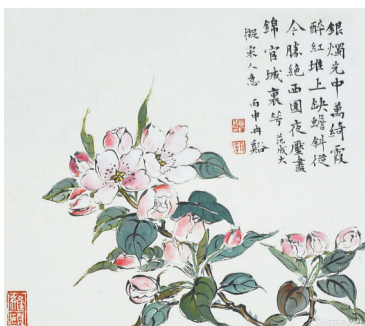 銀燭光中萬綺霞
醉紅堆上缺蟾斜從
今勝絕西園夜壓盡
錦官城裏花 范成大
擬宋人意 丙申冉